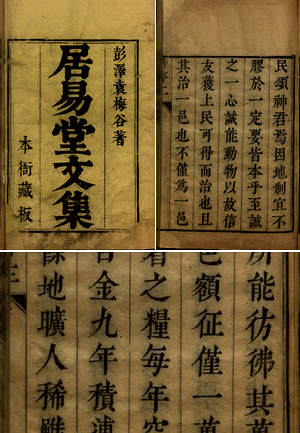 彭澤袁梅谷著
居易堂文集
本衙藏板
民頌神君焉因地制宜不
膠於一定要皆本乎至誠
之一心誠能動物以故信
友獲上民可得而治也且
其治一邑也不僅為一邑
所能彷彿其萬
邑額征僅一萬
之糧每年空
百金九年積逋
地曠人稀雖